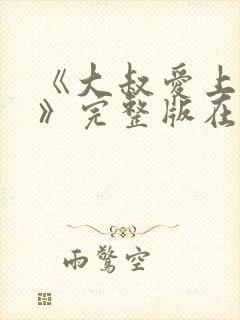 《大叔爱上
》完整版在
雨惊空